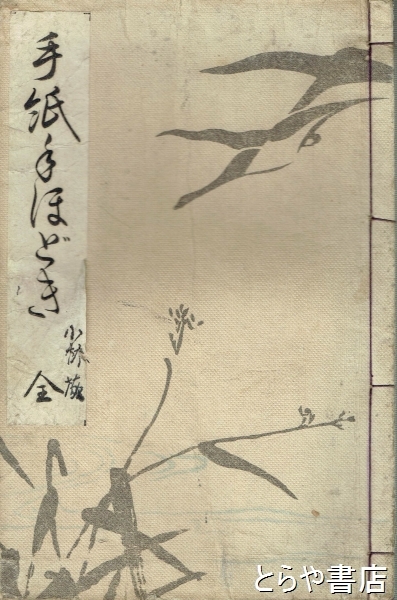 手紙手ほどき
全
とらや書店